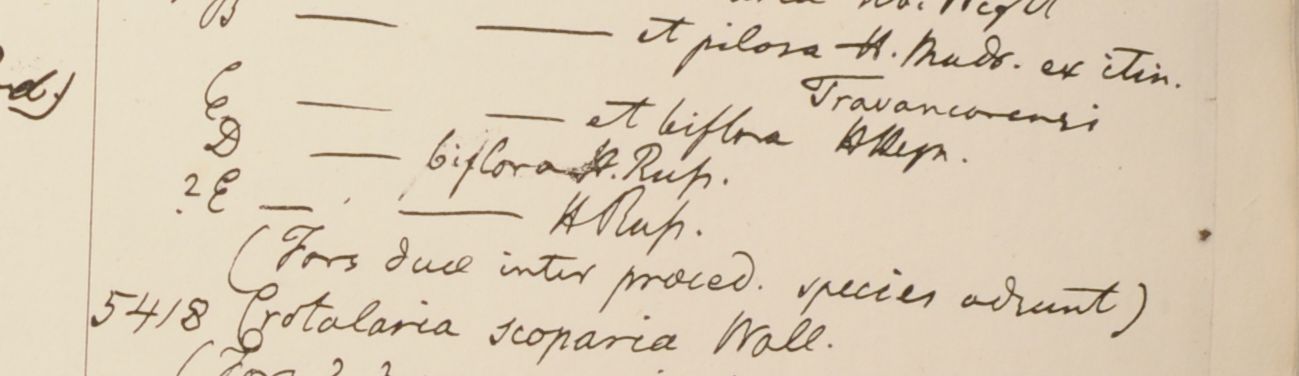 B — — et pilosa H. Madr. ex itin.
Travancorensi
C — — et biflora H Heyn.
D — biflora H. Rup.
? E — — H Rup.
(Fors duæ inter præced. species adsunt)
5418 Crotalaria scoparia Wall.